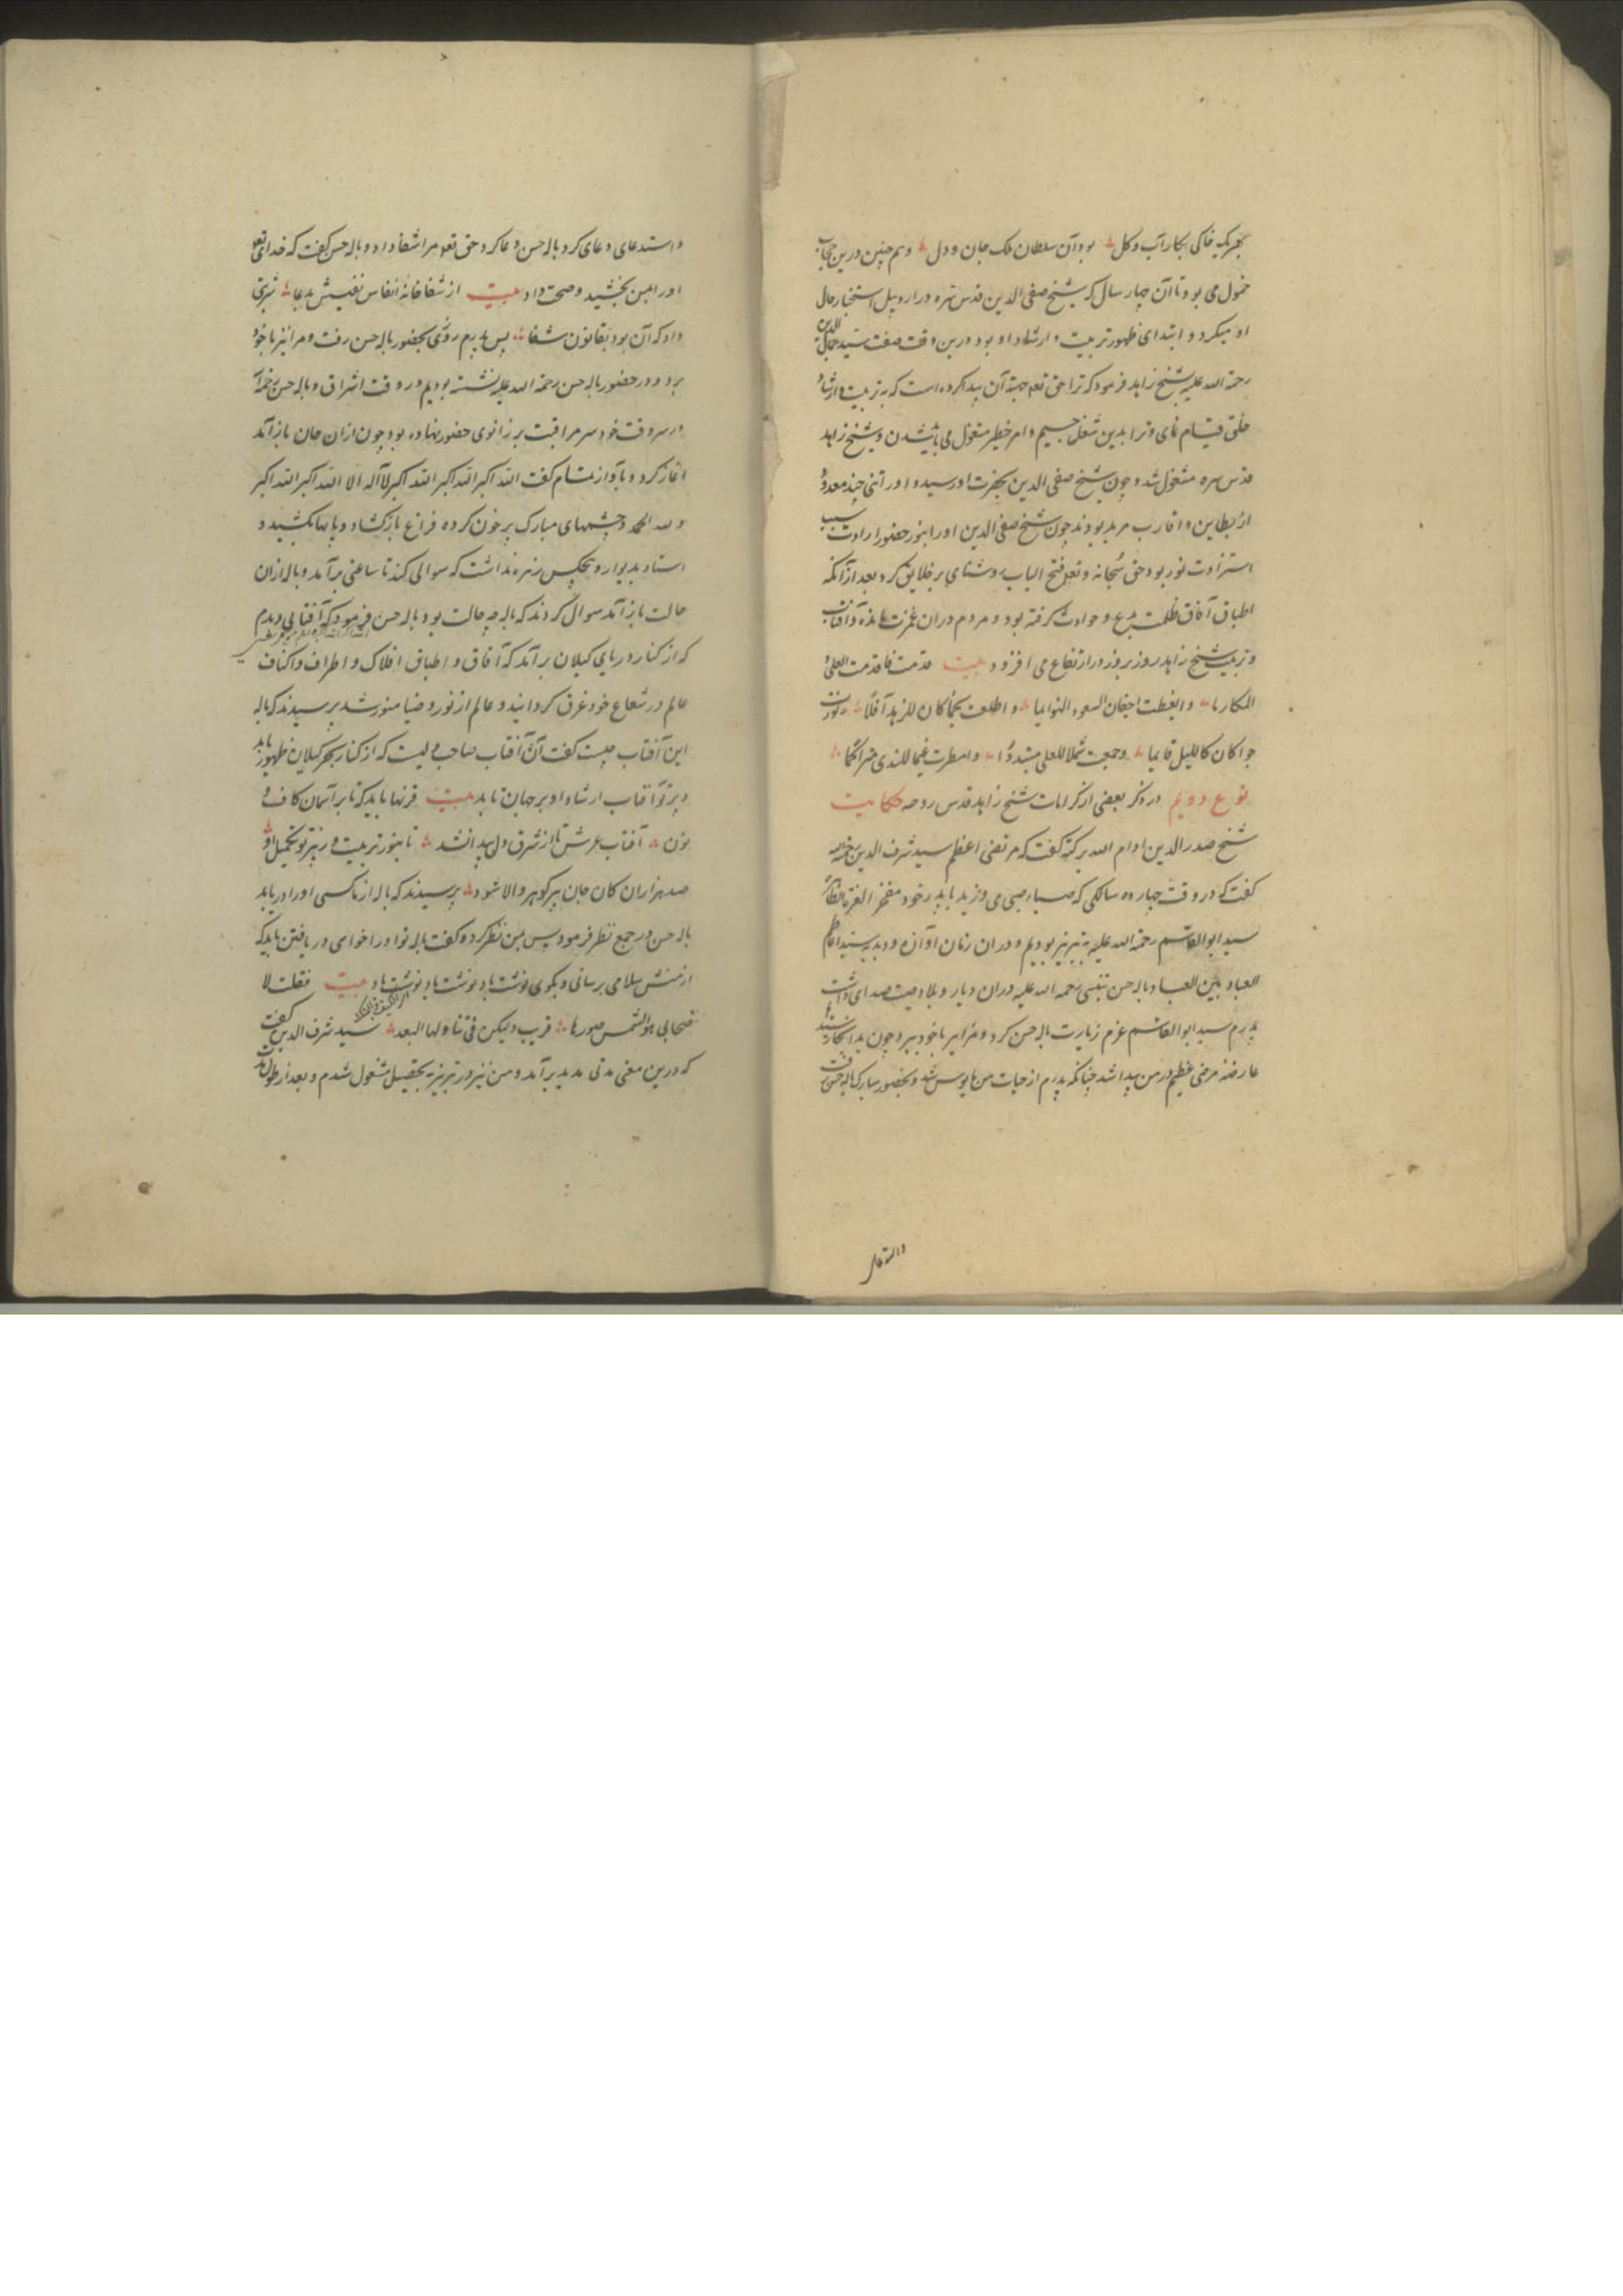 بحریک خاکی بکار آب و کل بود آن سلطان ملک جان و دل و هم چنین درین حجاب
خمول می بود تا آن چهار سال که شیخ صفی الدین قدس سره در اردبیل استخبار حال
او میکرد و ابتدای ظهور تربیت و ارشاد او بود درین وقت صفت سید جمال الدین
رحمة الله علیه شیخ زاهد فرمود که ترا حق تعم جهة آن پیدا کرده است که به تربیت و ارشاد
خلق قیام نمای و ترا بدین شغل جسیم و امر خطیر مشغول می باید شدن و شیخ زاهد
قدس سره مشغول شد و چون شیخ صفی الدین بحضرت او رسید و او را تنی چند معدود
از بطاین و اقارب مرید بودند چون شیخ صفی الدین او را بنور حضور ارادت سبب
استزادت نور بود حق سبحانه و تعم فتح الباب روشنای بر خلایق کرد بعد از آنکه
اطباق آفاق ظلمت بدع و حوادث گرفته بود و مردم در آن غمرت مانده و آفتاب
و تربیت شیخ زاهد روز بروز در ارتفاع می افزود بیت قدمت فاقدمت العلی و
المکارما و ایقظت اجفان السعود النوایما و اطلعت نجما کان للزهد آفلا و نورت
جوا کان کاللیل قایما و جمعت شملا للعلی متبددا و امطرت غیما للندی متراکما
نوع دویم در ذکر بعضی از کرامات شیخ زاهد قدس روحه حکایت
شیخ صدر الدین ادام الله برکته گفت که مرتضی اعظم سید شرف الدین رحمة الله
گفت که در وقت چهارده سالگی که صباء صبی می وزید با پدر خود مفخر العترة الطاهرة
سید ابو القاسم رحمة الله علیه به تبریز بودیم و در آن زمان آوازه و دبدبه سید اعاظم
العباد بین العباد باله حسن بنیسی رحمه الله علیه در آن دیار و بلاد صیت صدای داشت
پدرم سید ابو القاسم عزم زیارت باله حسن کرد و مرا بر با خود ببرد چون بدانجا رسید
عارضه مرضی عظیم در من پیدا شد چنانکه پدرم از حیات من مایوس شد و بحضور مبارک باله حسن رفت
و استدعای
و استدعای دعای کرد باله حسن دعا کرد حق تعم مرا شفا داد و باله حسن گفت که خدای تعم
او را بمن بخشید و صحت داد بیت از شفا خانه انفاس نفیسش بدعا شربتی
داد که آن بود بقانون شفا پس پدرم روزی بحضور باله حسن رفت و مرا نیز با خود
برد و در حضور باله حسن رحمة الله علیه نشسته بودیم در وقت اشراق و باله حسن رحمة الله
در سر وقت خود سر مراقبت بر زانوی حضور نهاده بود چون از آن جان باز آمد
آغاز کرد و بآواز تمام گفت الله اکبر الله اکبر الله اکبر لا اله الا الله اکبر الله اکبر
و لله الحمد و چشمهای مبارک پر خون کرده فراغ باز کشاد و پایها بکشید و
استاد بدیوار و هیچکس زهره نداشت که سوالی کند تا ساعتی برآمد و باله از آن
حالت باز آمد سوال کردند که باله چه حالت بود باله حسن فرمود که آفتابی دیدم
که از کنار دریای کیلان برآمد که آفاق و اطباق افلاک و اطراف و اکناف
عالم در شعاع خود غرق گردانید و عالم از نور و ضیا منور شد پرسیدند که باله
این آفتاب چیست گفت آن آفتاب صاحب دلیست که از کنار بحر کیلان ظهور یابد
و پرتو آفتاب ارشاد او بر جهان تابد بیت قرنها باید که تا بر آسمان کاف و
نون آفتاب عرش تا از شرق دل پیدا شد تا بنور تربیت در پرتو تکمیل او
صد هزاران کان جان پر گوهر والا شود پرسیدند که باله از ما کسی او را دریابد
باله حسن در جمع نظر فرمود پس بمن نظر کرده گفت باله تو او را خواهی دریافتن باید که
از منش سلامی برسانی و بگوی نوشت باد نوشت باد نوشت باد بیت فقلت لا
صحابی هو الشمس صورها قریب و لیکن فی تناولها البعد سید شرف الدین گفت
که درین معنی مدتی مدید برآمد و من نیز در تبریز بتحصیل مشغول شدم و بعد از طول مدت